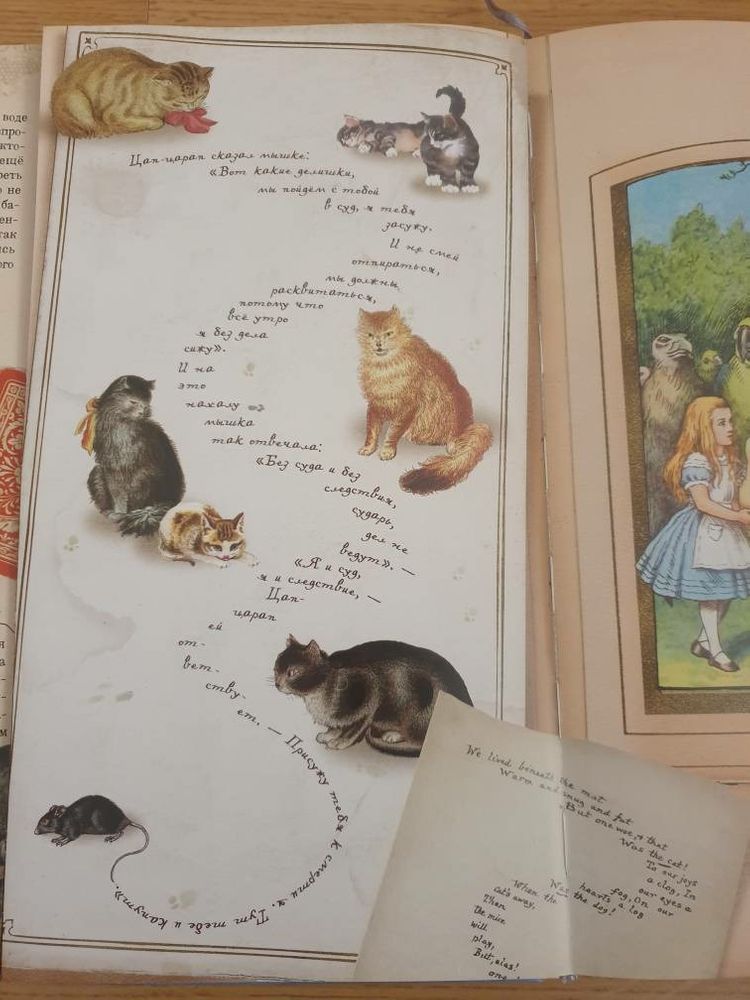 воде
про-
кто-
ещё
реть
не
ба-
ен-
так
сь
ого
Цап-царап сказал мышке:
«Вот какие делишки,
мы пойдём с тобой
в суд, я тебя
засужу.
И не смей
отпираться,
мы должны
расквитаться,
потому что
всё утро
я без дела
сижу».
И на
это
нахалу
мышка
так отвечала:
«Без суда и без
следствия,
сударь,
дел не
ведут». —
«Я и суд,
я и следствие, —
Цап-
царап
ей
от-
вет-
ству-
ет. — Присужу тебя к смерти я. Тут тебе и капут».
We lived beneath the mat
Warm and snug and fat
But one woe, & that
Was the cat!
To our joys
a clog, In
our eyes a
fog, On our
hearts a log
Was the dog!
When the
cat's away,
Then
the mice
will
play,
But, alas!
one